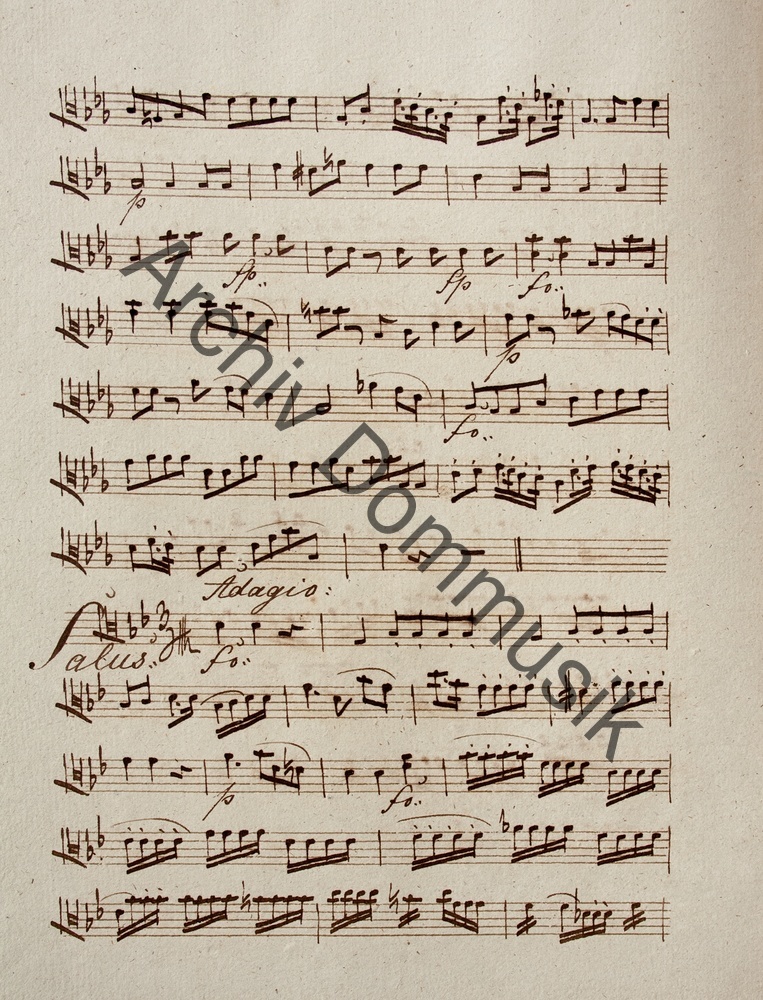 p
fp.. fp fo..
p
fo..
Adagio:
Salus.. fo..
p fo..
Archiv Dommusik